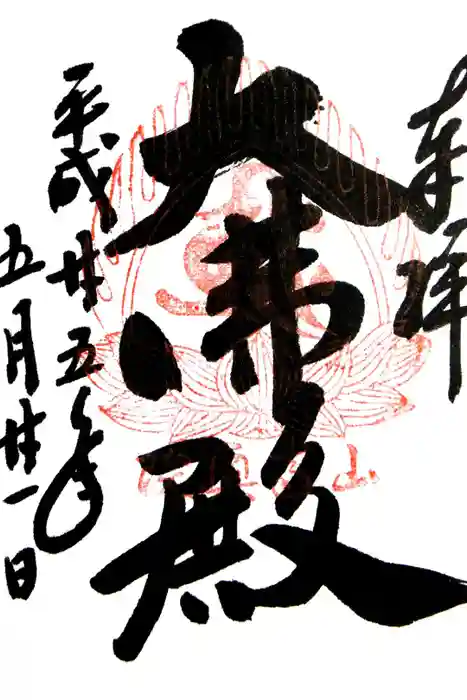 奉拝
大佛殿
平成廿五年
五月廿一日